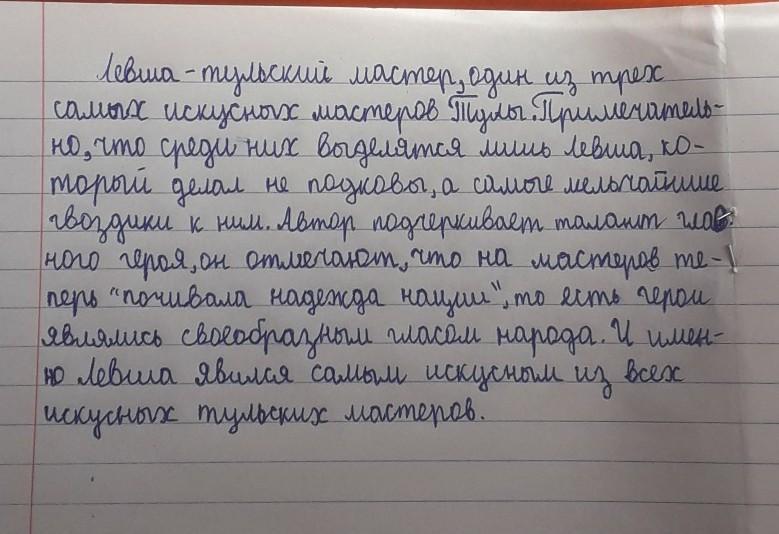 Левша - тульский мастер, один из трех
самых искусных мастеров Тулы. Примечатель-
но, что среди них выделятся лишь левша, ко-
торый делал не подковы, а самые мельчайшие
гвоздики к ним. Автор подчеркивает талант глав-
ного героя, он отмечают, что на мастеров те-
перь "почивала надежда нации", то есть герои
являлись своеобразным гласом народа. И имен-
но Левша явился самым искусным из всех
искусных тульских мастеров.